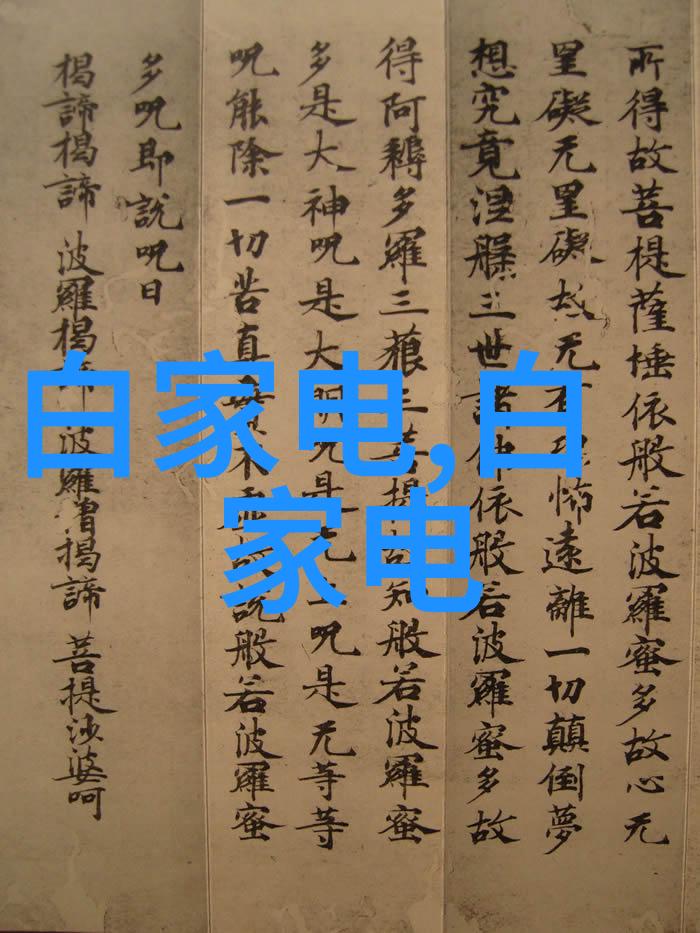 所得故菩提薩埵依般若波羅蜜多故心无
罣礙无罣礙故无有恐怖遠離一切顛倒夢
想究竟涅槃三世諸佛依般若波羅蜜多故
得阿耨多羅三藐三菩提故知般若波羅蜜
多是大神咒是大明咒是无上咒是无等等
咒能除一切苦真實不虛故說般若波羅蜜
多咒即說咒曰
揭諦揭諦 波羅揭諦 波羅僧揭諦 菩提沙婆呵
白家电,白
家电